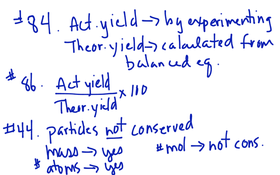 #84. Act. yield → by experimenting
Theor. yield → calculated from
balanced eq.
#86. Act yield
Theor. yield × 100
#44. particles not conserved
mass → yes
# mol → not cons.
# atoms → yes